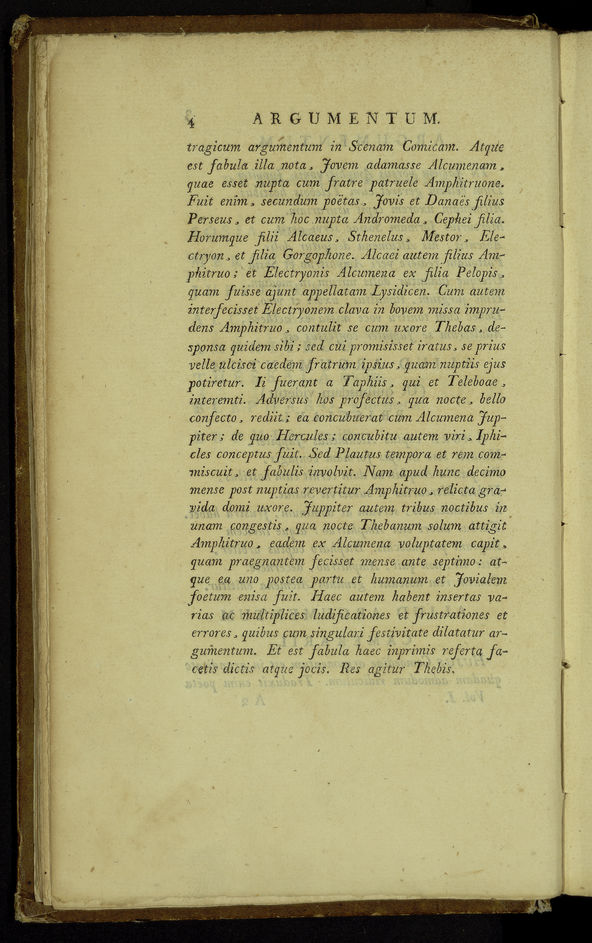 4 ARGUMENTUM.
tragicum argumentum in Scenam Comicam. Atque
est fabula illa nota, Jovem adamasse Alcumenam,
quae esset nupta cum fratre patruele Amphitruone.
Fuit enim, secundum poëtas, Jovis et Danaës filius
Perseus, et cum hoc nupta Andromeda, Cephei filia.
Horumque filii Alcaeus, Sthenelus, Mestor, Ele-
ctryon, et filia Gorgophone. Alcaei autem filius Am-
phitruo; et Electryonis Alcumena ex filia Pelopis,
quam fuisse ajunt appellatam Lysidicen. Cum autem
interfecisset Electryonem clava in bovem missa impru-
dens Amphitruo, contulit se cum uxore Thebas, de-
sponsa quidem sibi; sed cui promisisset iratus, se prius
velle ulcisci caedem fratrum ipsius, quam nuptiis ejus
potiretur. Ii fuerant a Taphiis, qui et Teleboae,
interemti. Adversus hos profectus, qua nocte, bello
confecto, rediit; ea concubuerat cum Alcumena Jup-
piter; de quo Hercules; concubitu autem viri, Iphi-
cles conceptus fuit. Sed Plautus tempora et rem com-
miscuit, et fabulis involvit. Nam apud hunc decimo
mense post nuptias revertitur Amphitruo, relicta gra-
vida domi uxore. Juppiter autem tribus noctibus in
unam congestis, qua nocte Thebanum solum attigit
Amphitruo, eadem ex Alcumena voluptatem capit,
quam praegnantem fecisset mense ante septimo: at-
que ea uno postea partu et humanum et Jovialem
foetum enisa fuit. Haec autem habent insertas va-
rias ac multiplices ludificationes et frustrationes et
errores, quibus cum singulari festivitate dilatatur ar-
gumentum. Et est fabula haec inprimis referta fa-
cetis dictis atque jocis. Res agitur Thebis.